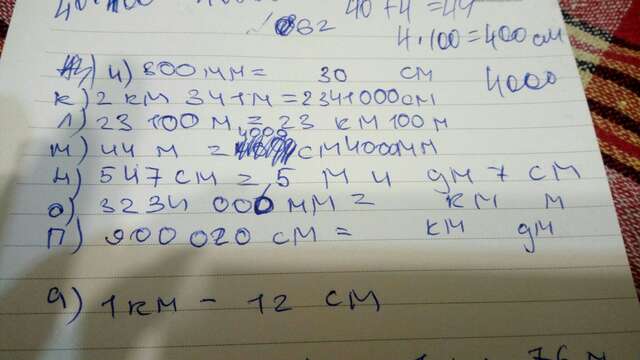 40 + 4 = 44
62
4 · 100 = 400 см
4000
и) 300 мм = 30 см
к) 2 км 341 м = 2341000 см
л) 23 100 м = 23 км 100 м
4000
м) 44 м = см 4000 мм
н) 547 см = 5 м 4 дм 7 см
о) 3234 000 мм = км м
п) 900 020 см = км дм
а) 1 км - 12 см